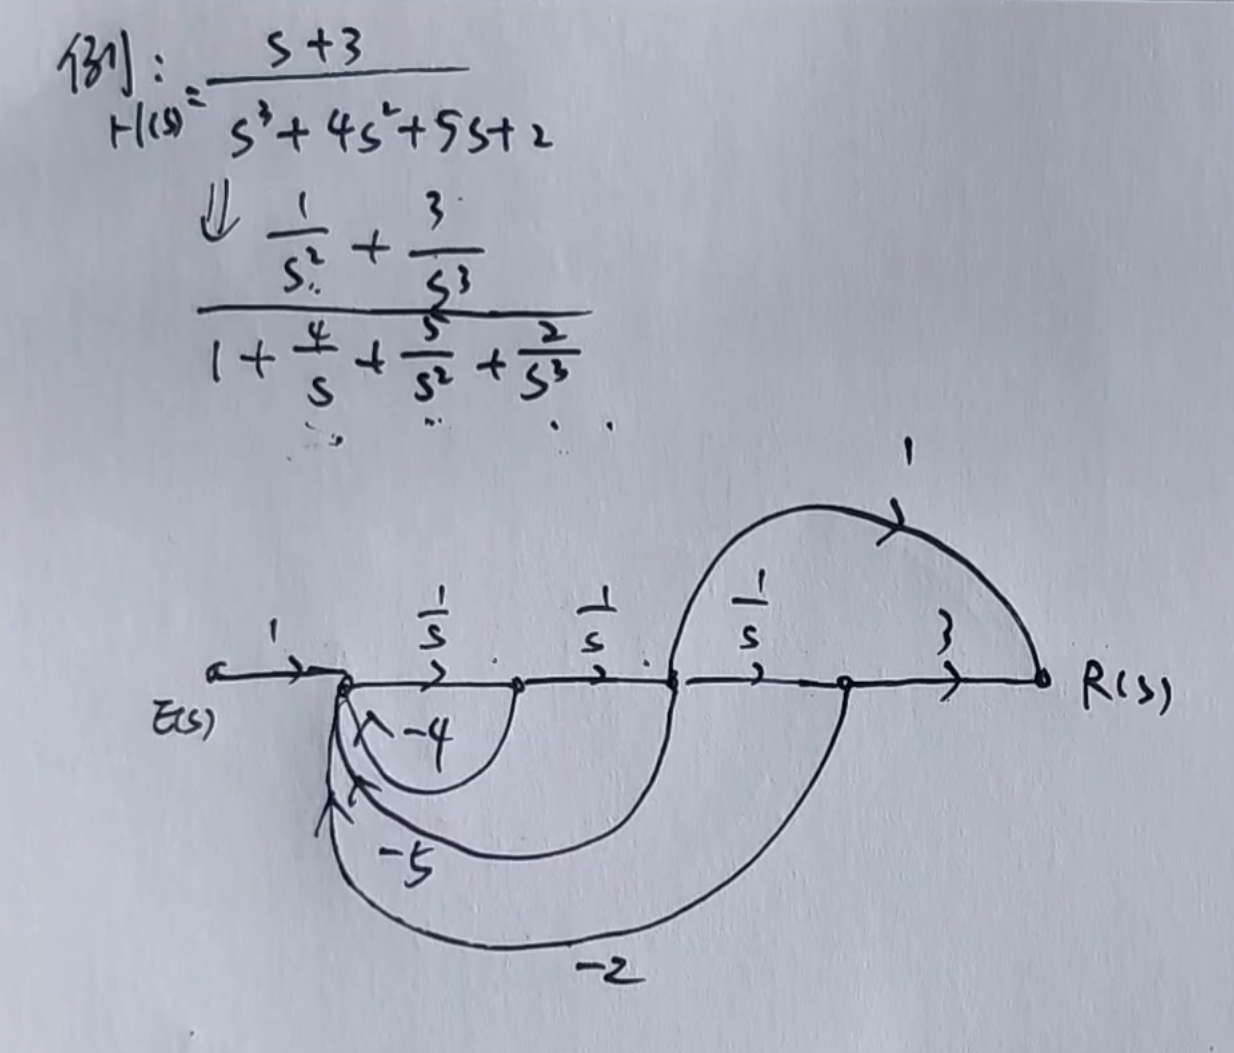 例:
H(s) = s+3 / s³+4s²+5s+2
⇓ 1/s² + 3/s³
1 + 4/s + 5/s² + 2/s³
1
1/s 1/s 1/s
1 3
E(s) R(s)
-4
-5
-2